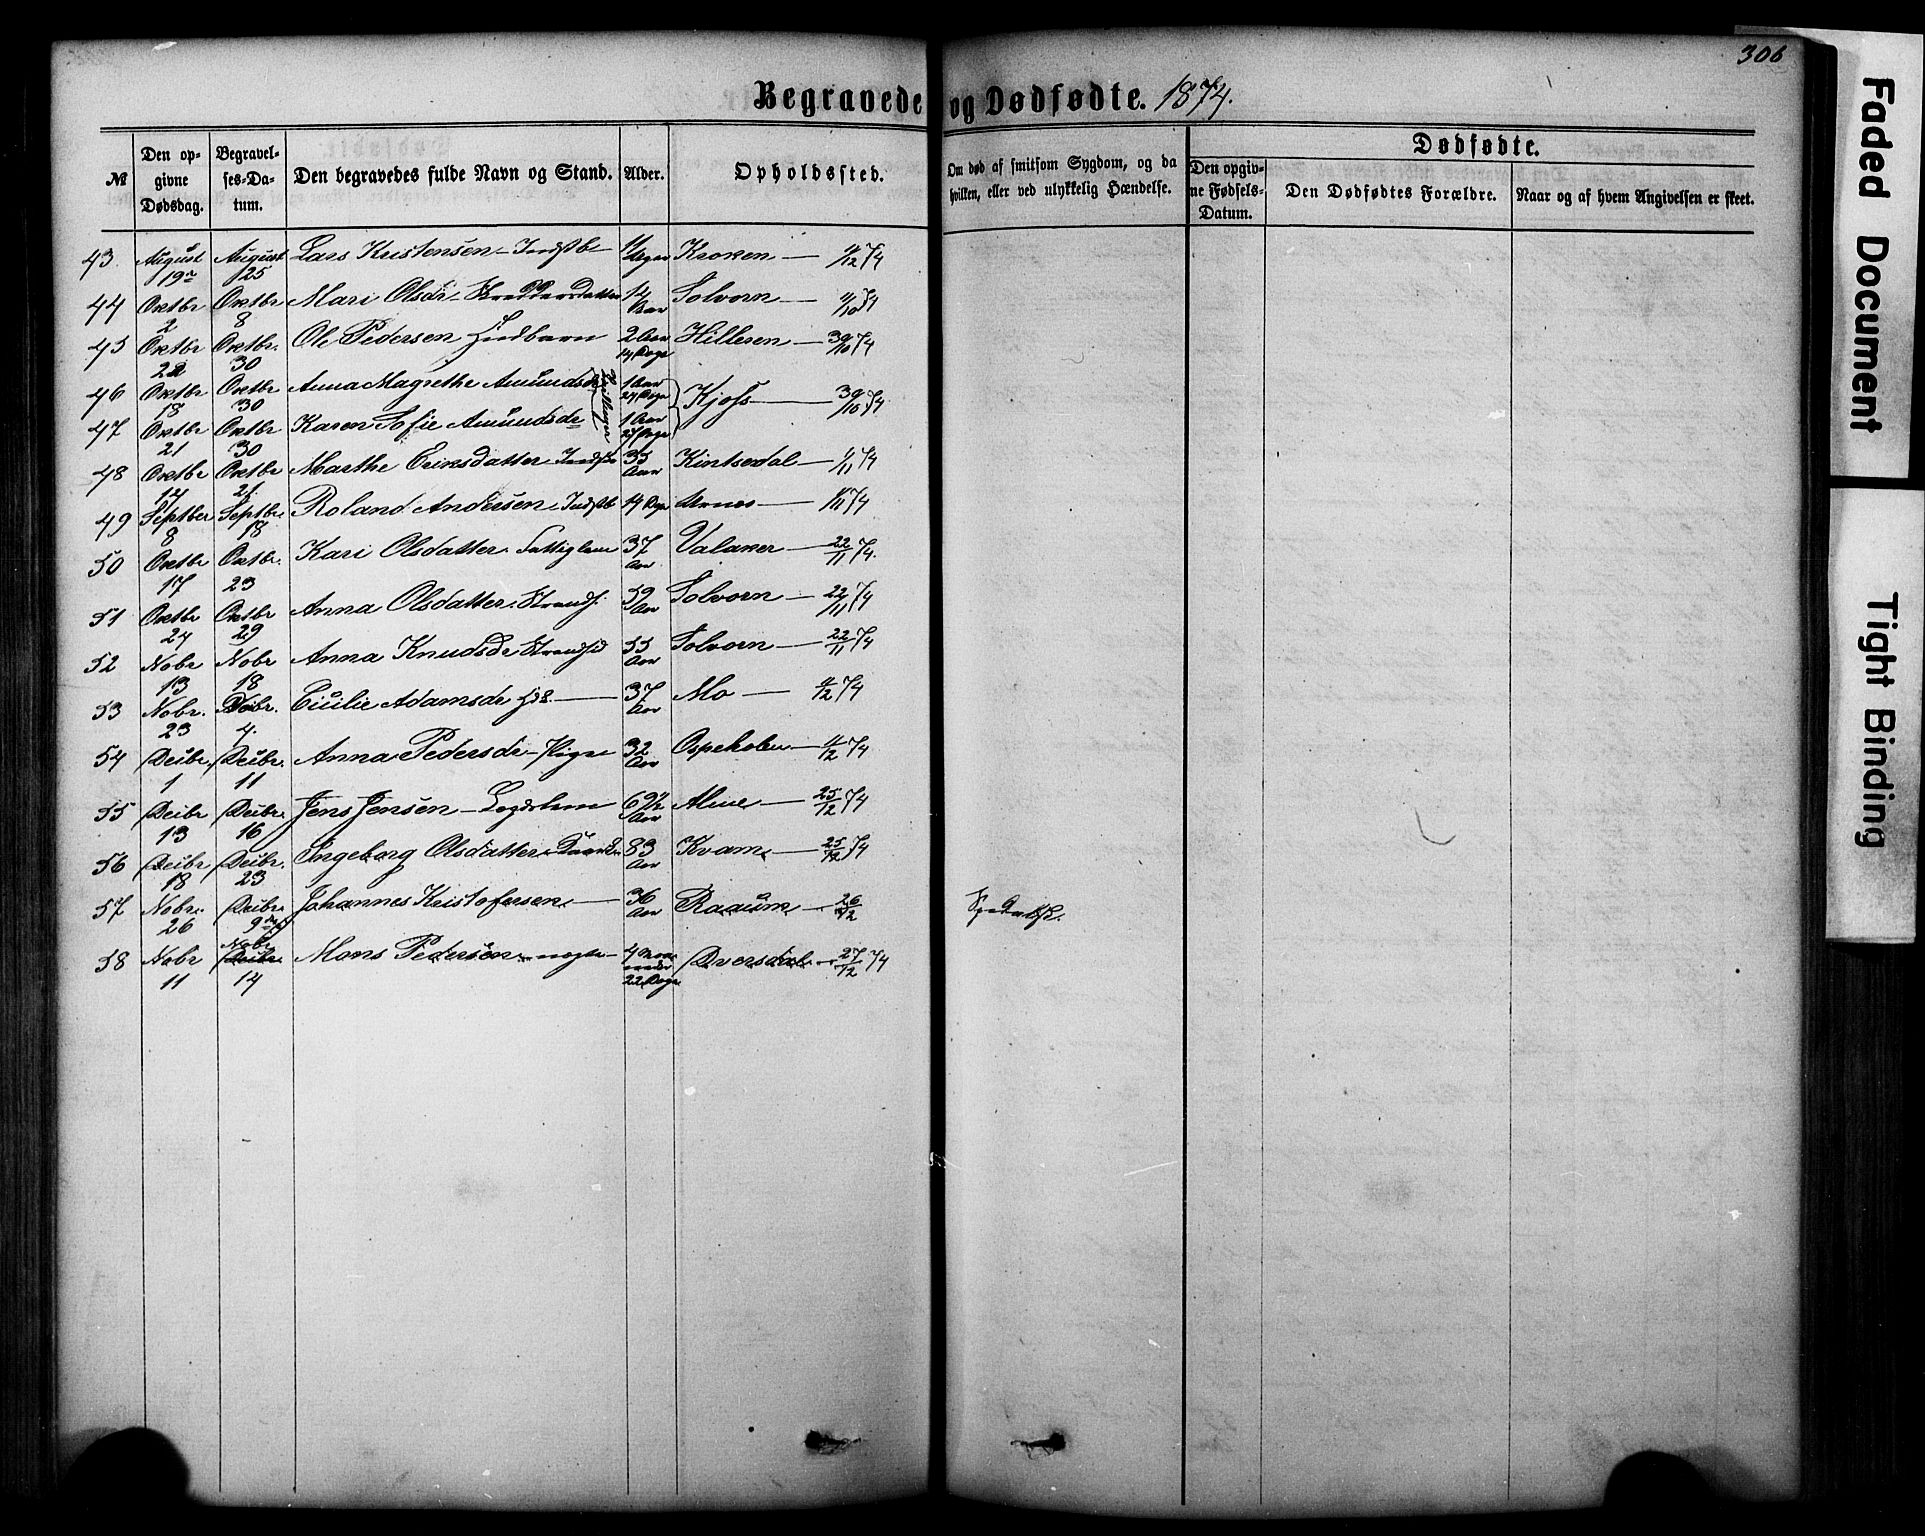 306
Begravede og Dødfødte. 1874.
№
Den opgivne Dødsdag.
Begravelses-Datum.
Den begravedes fulde Navn og Stand.
Alder.
Opholdssted.
Om død af smitsom Sygdom, og da hvilken, eller ved ulykkelig Hændelse.
Dødfødte.
Den opgivne Fødsels-Datum.
Den Dødfødtes Forældre.
Naar og af hvem Angivelsen er skeet.
43. August 19 August 25 Lars Kristensen Kroken — 74
44 Oktbr 2 Oktbr 8 Mari Olsdr Aar Solvorn — 74
45 Oktbr 22 Oktbr. 30 Ole Pedersen 2 Aar 14 Dage Hilleren — 30/10 74
46 Oktbr 18 Oktbr 30 Anna Magrethe Amundsdr 1 Aar 27 Dage Kjøs — 30/10 74
47 Oktbr 21 Oktbr 30 Karen Sofie Amundsdr 1 Aar 27 Dage
Tvillinger
48 Oktbr 17 Oktbr 21. Marthe Eriksdatter 35 Aar Kintsedal — 1/11 74
49 Septber 8 Septbr. 18 Roland Andersen Indstb 14 Dge Urnes — 1/11 74
50 Oktbr 17 Oktbr. 23 Kari Olsdatter Fattiglem 37 Aar Valaker — 22/11 74.
51 Oktbr 24 Oktbr 29 Anna Olsdatter. Strands. 59 Aar Solvorn — 22/11 74
52 Nobr 13 Nobr 18 Anna Knudsdr Strandsid 55 Aar Solvorn — 22/11 74
53 Nobr. 23 4. Adamsdr — 37 Aar Mo — 74
54 Decbr. 1 Decbr. 11 Anna Pedersdr — Pige 32 Aar Ospeholen — 74
55 Decbr 13 Decbr. 16 Jens Jensen — Legdslem 69½ Aar — 25/12 74
56 Decbr 18 Decbr. 23 Ingeborg Olsdatter 83 Aar Kvam — 25/12 74
57 Nobr. 26 Decbr. 9 Johannes Kristofersen — 36 Aar Raaum — 26/12 Spedalsk.
58 Nobr 11 Nobr Decbr. 14 Mons Pedersen. 4 Maaneder 22 Dage Dversdal — 27/12 74
Faded Document
Tight Binding